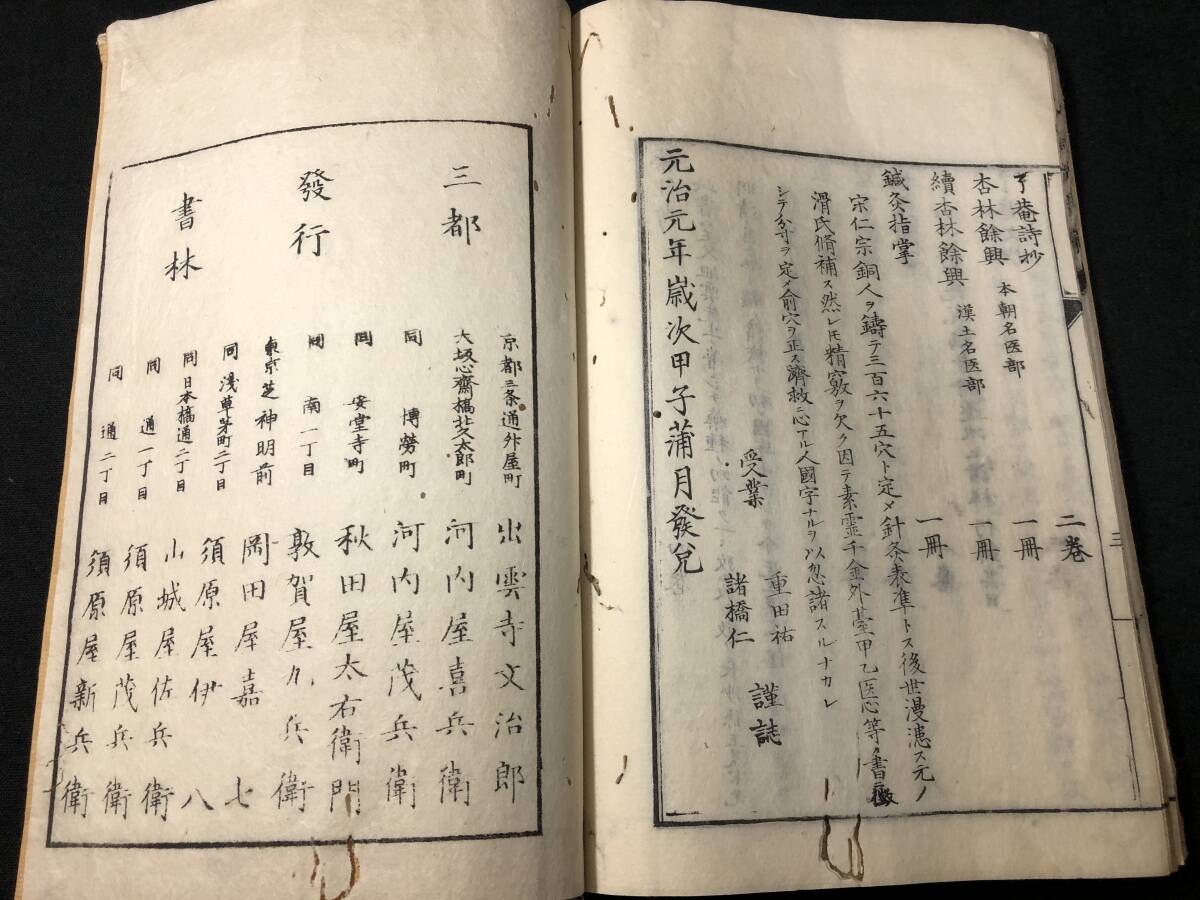 了菴詩抄 二卷
杏林餘興 本朝名医部 一冊
續杏林餘興 漢土名医部 一冊
鍼灸指掌 一冊
宋仁宗銅人ヲ鑄テ三百六十五穴ト定メ針灸表準トス後世漫漶ス元ノ
滑氏脩補ス然レ𪜈精竅ヲ欠ク因テ素霊千金外臺甲乙医心等ノ書ニ徴
シテ分寸ヲ定メ俞穴ヲ正ス濟救ニ心アル人國字ナルヲ以忽諸スルナカレ
受業 重田祐
諸橋仁 謹誌
元治元年歳次甲子蒲月發兌
三都
發行
書林
京都三条通舛屋町 出雲寺文治郎
大坂心齋橋北久太郎町 河内屋喜兵衛
同 博勞町 河内屋茂兵衛
同 安堂寺町 秋田屋太右衛門
同 南一丁目 敦賀屋九兵衛
東京芝神明前 岡田屋嘉七
同淺草茅町二丁目 須原屋伊八
同日本橋通二丁目 山城屋佐兵衛
同 通一丁目 須原屋茂兵衛
同 通二丁目 須原屋新兵衛
三